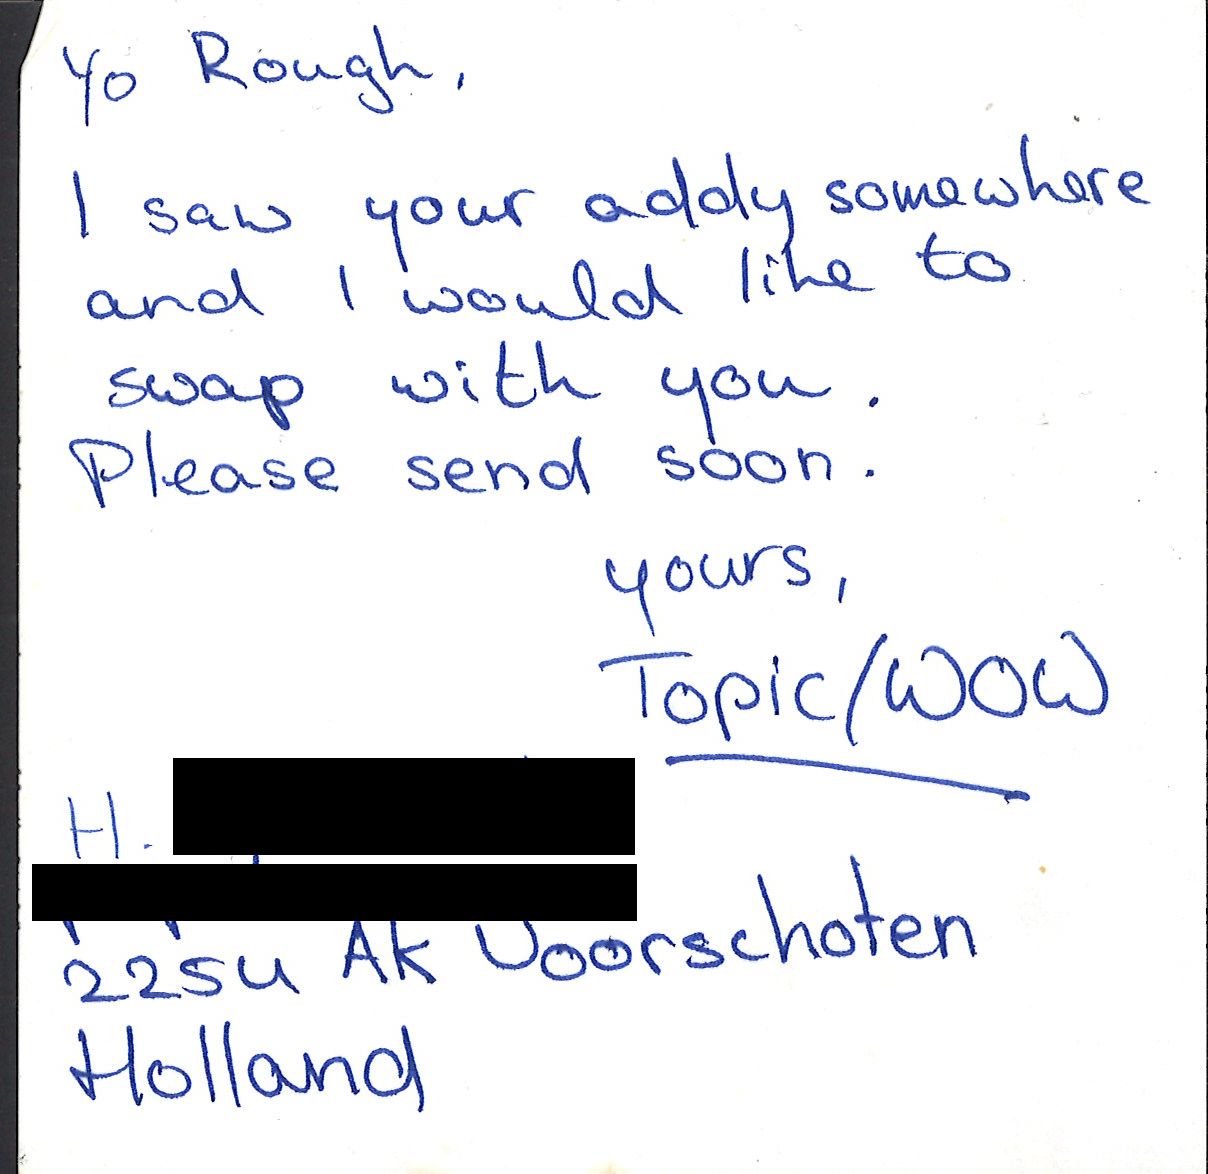 Yo Rough,
I saw your addy somewhere
and I would like to
swap with you.
Please send soon.
yours,
Topic/WOW
H.
2254 AK Voorschoten
Holland